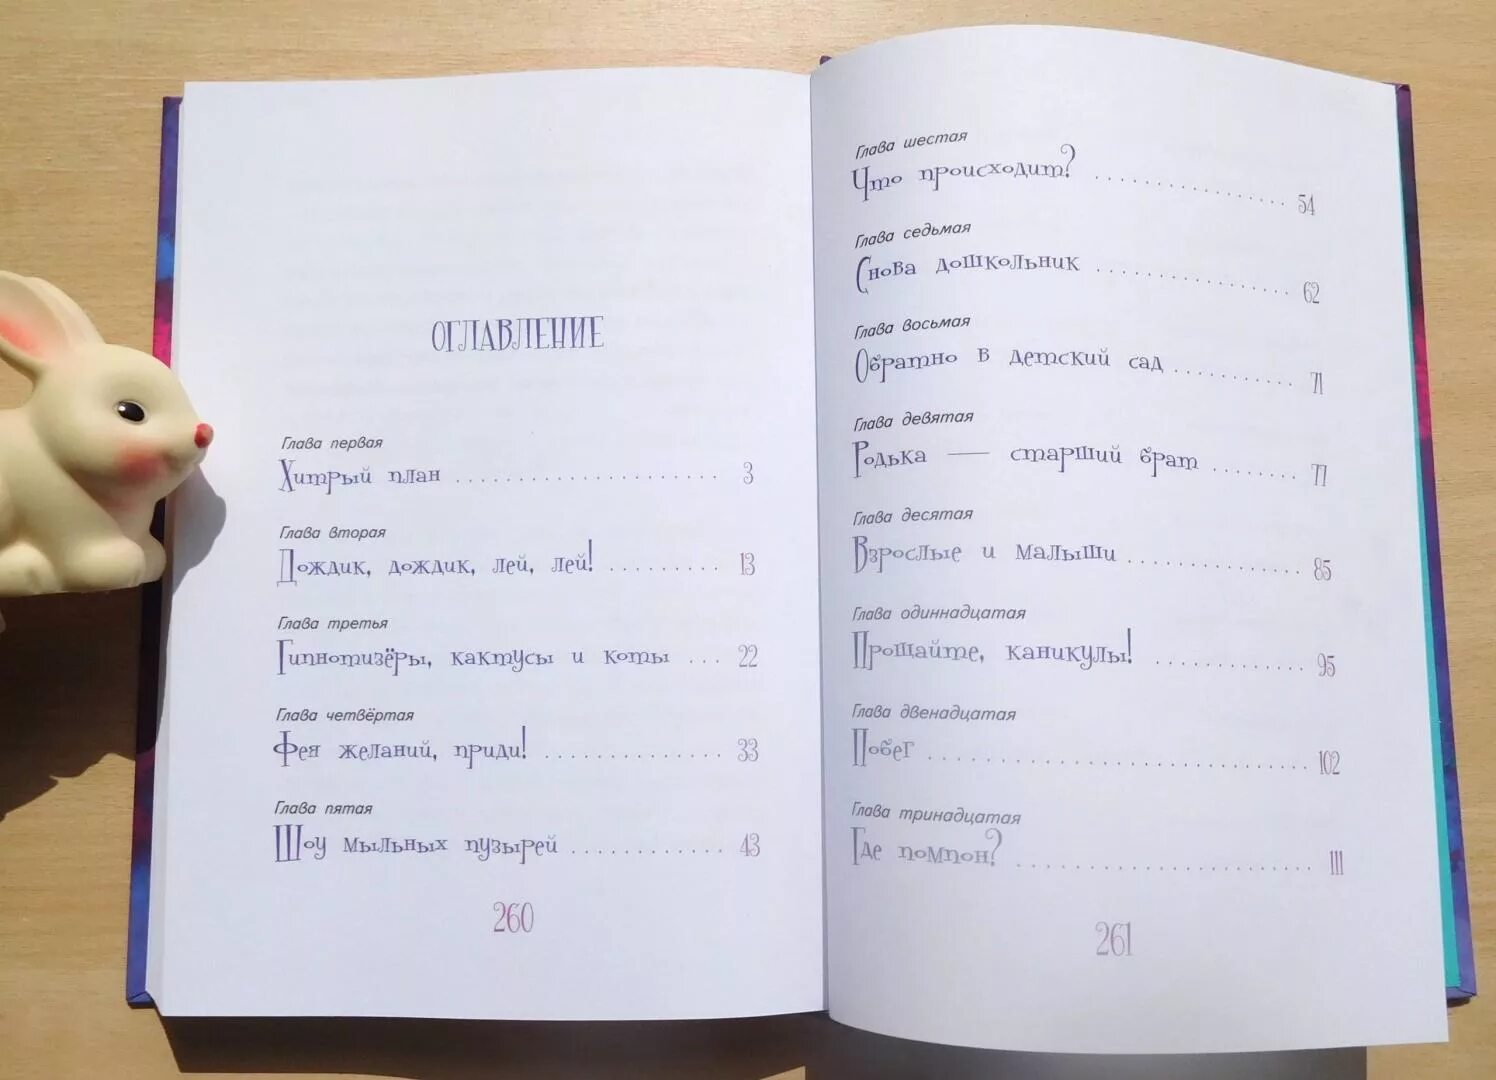 ОГЛАВЛЕНИЕ
Глава первая
Хитрый план .................... 3
Глава вторая
Дождик, дождик, лей, лей! ......... 13
Глава третья
Гипнотизёры, кактусы и коты ... 22
Глава четвёртая
Фея желаний, приди! .............. 33
Глава пятая
Шоу мыльных пузырей ............ 43
260
Глава шестая
Что происходит? ................ 54
Глава седьмая
Снова дошкольник ................ 62
Глава восьмая
Обратно в детский сад .......... 71
Глава девятая
Родька — старший брат ....... 77
Глава десятая
Взрослые и малыши .............. 85
Глава одиннадцатая
Прощайте, каникулы! ............ 95
Глава двенадцатая
Побег .............................. 102
Глава тринадцатая
Где помпон? ....................... 111
261